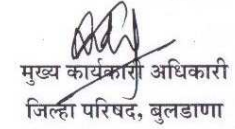 मुख्य कार्यकारी अधिकारी
जिल्हा परिषद, बुलडाणा